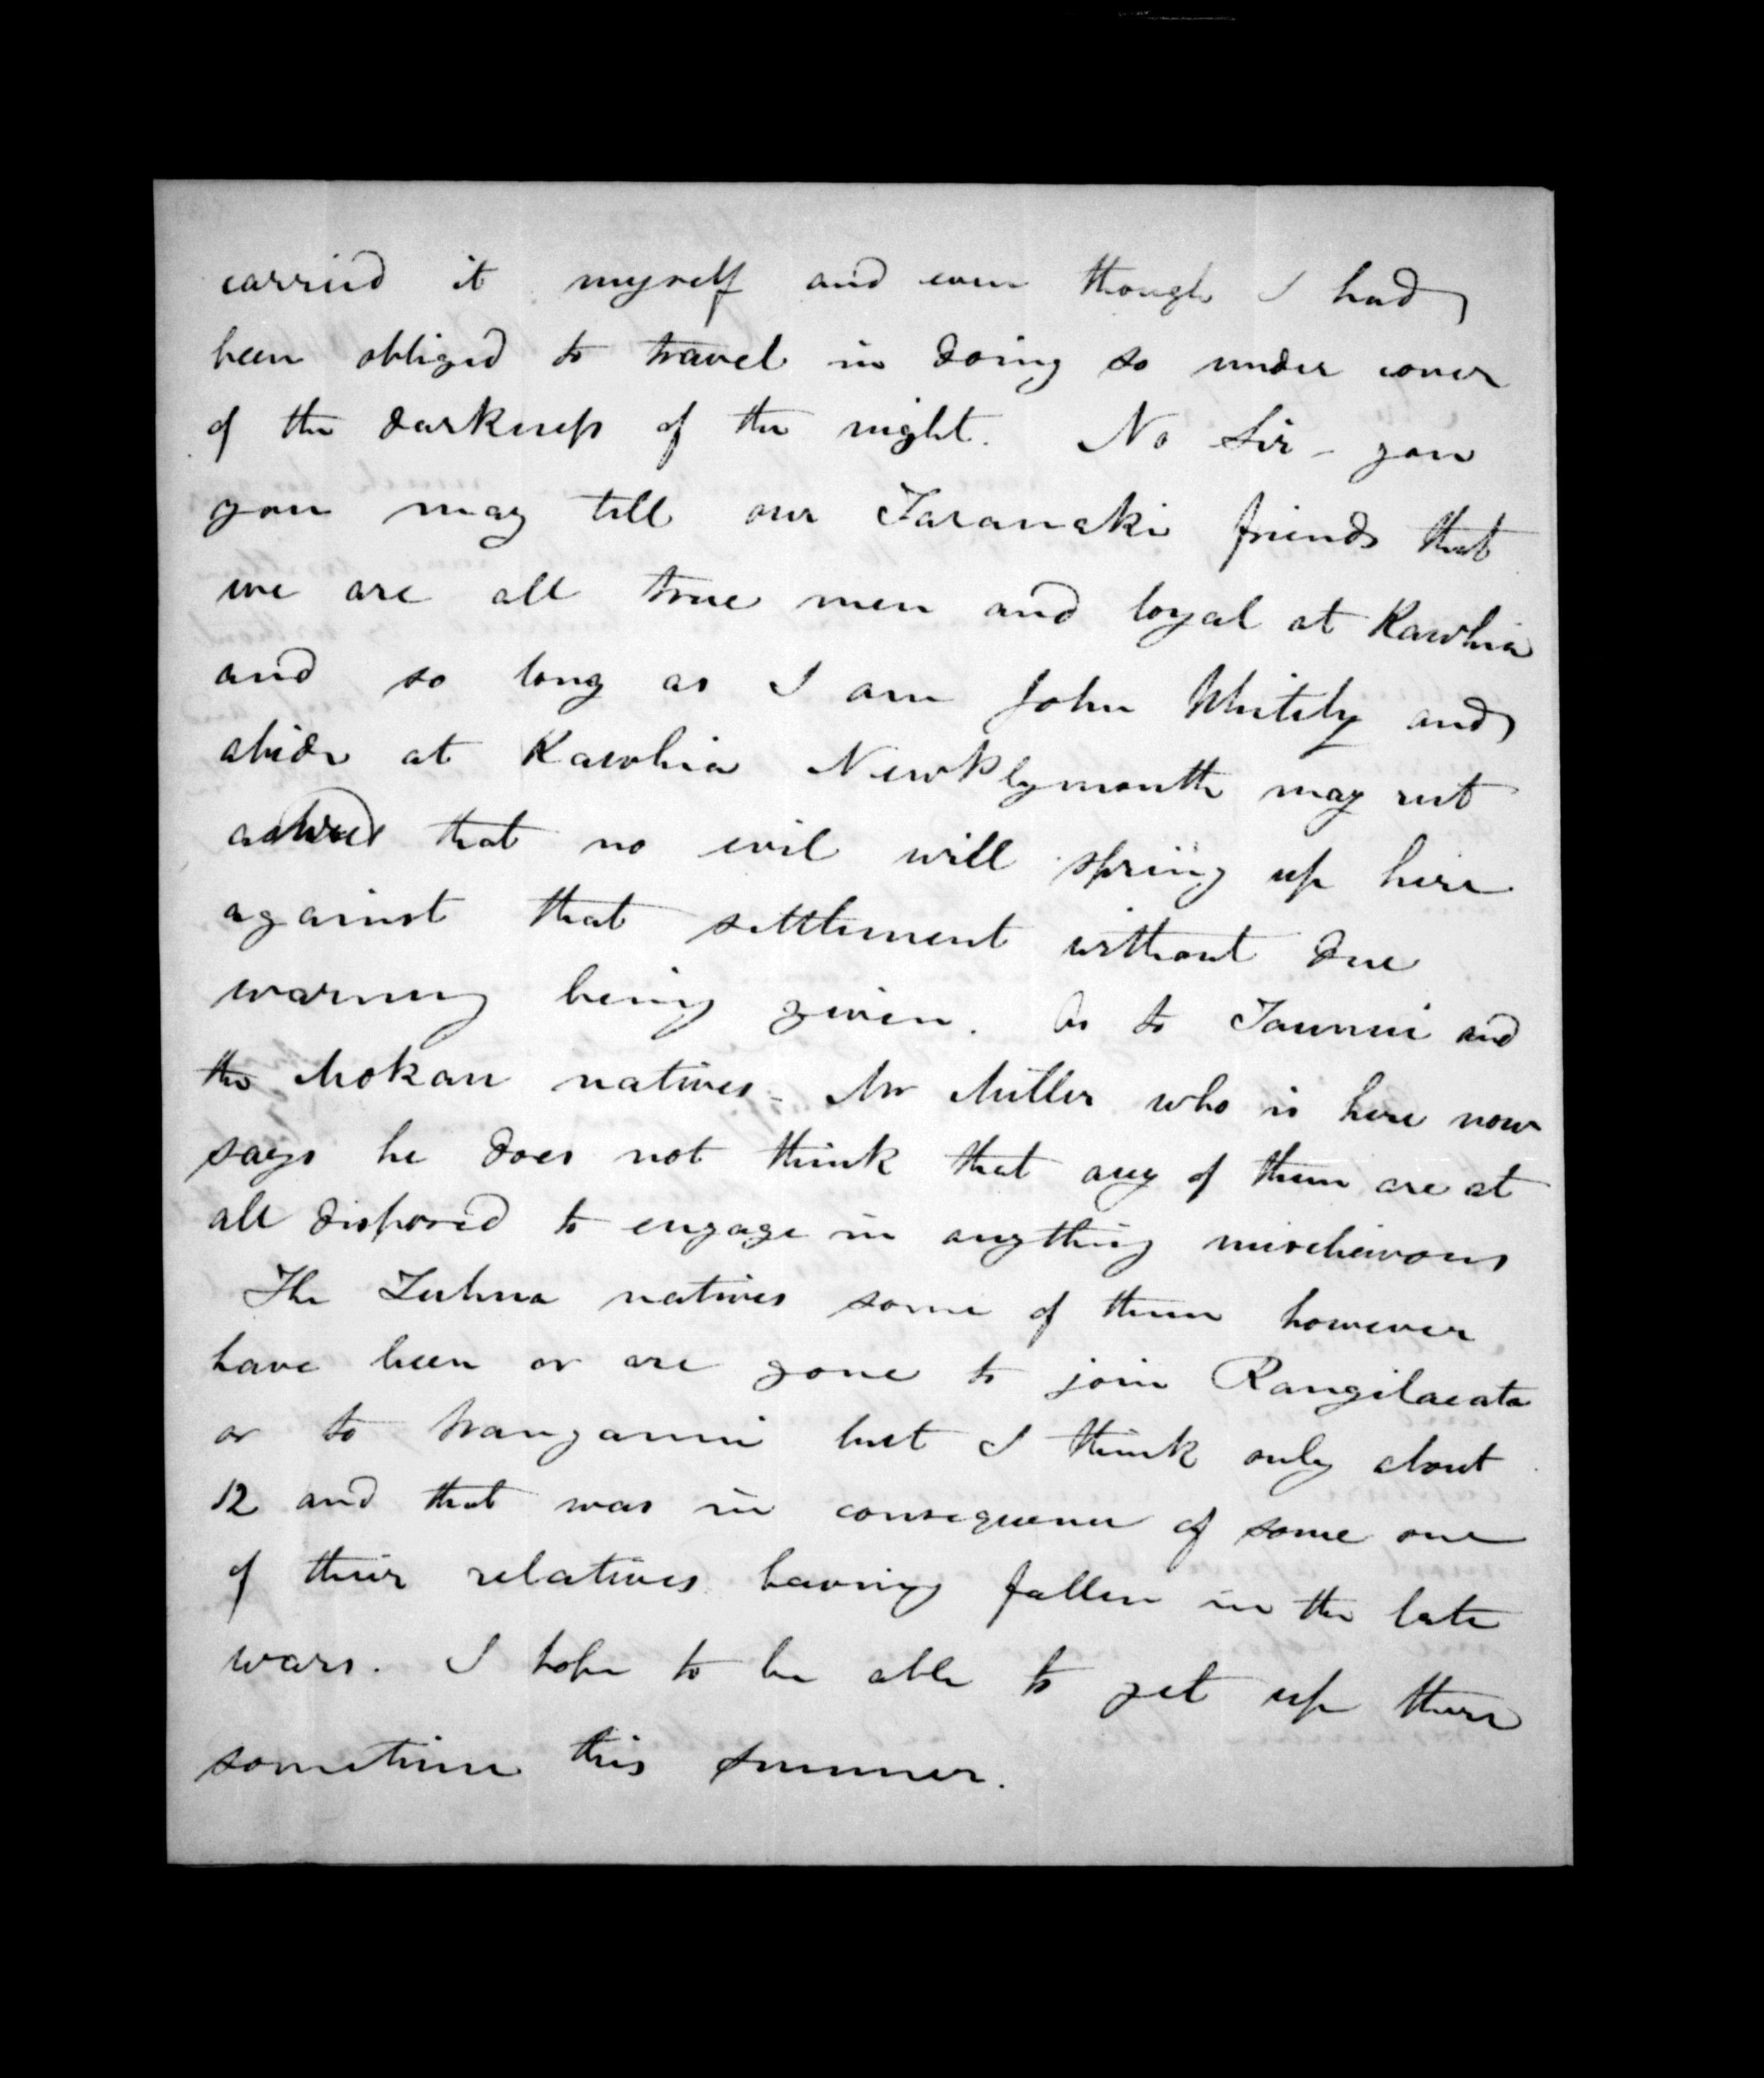 carried it myself and even though I had
been obliged to travel in doing so under cover
of the darkness of the night. No Sir - you
you may tell our Taranaki friends that
we are all true men and loyal at Kawhia
and so long as I am John Whitely and
abide at Kawhia New Plymouth may rest
that no evil will spring up here
against that settlement without due
warning being given. As to Taonui and
the Mokau natives - Mr Miller who is here now
says he does not think that any of them are at
all disposed to engage in anything mischievous
The Tuhua natives some of them however
have been or are gone to join Rangihaeata
or to Wanganui but I think only about
12 and that was in consequence of some one
of their relatives having fallen in the late
wars. I hope to be able to get up there
sometime this summer.